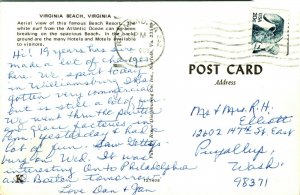 VIRGINIA BEACH, VIRGINIA
Aerial view of this famous Beach Resort. The
white surf from the Atlantic Ocean can be seen
breaking on the spacious Beach. In the back-
ground are the many Hotels and Motels available
to visitors.
Hi! 19 years has
made a lot of
here. We spent today
in Williamsburg. It's
gotten very commercial
but is still a lot of fun.
We went thru the pottery
&
Yesterday & had a
lot of fun. Saw Gettys-
burg on Wed. It was
interesting. On to Philadelphia
and Boston Tomorrow.
Love Dan & Jan
POST CARD
Address
Mr & Mrs R.H.
Elliott
13602 147th St. East
Puyallup,
Wash.
98371
K